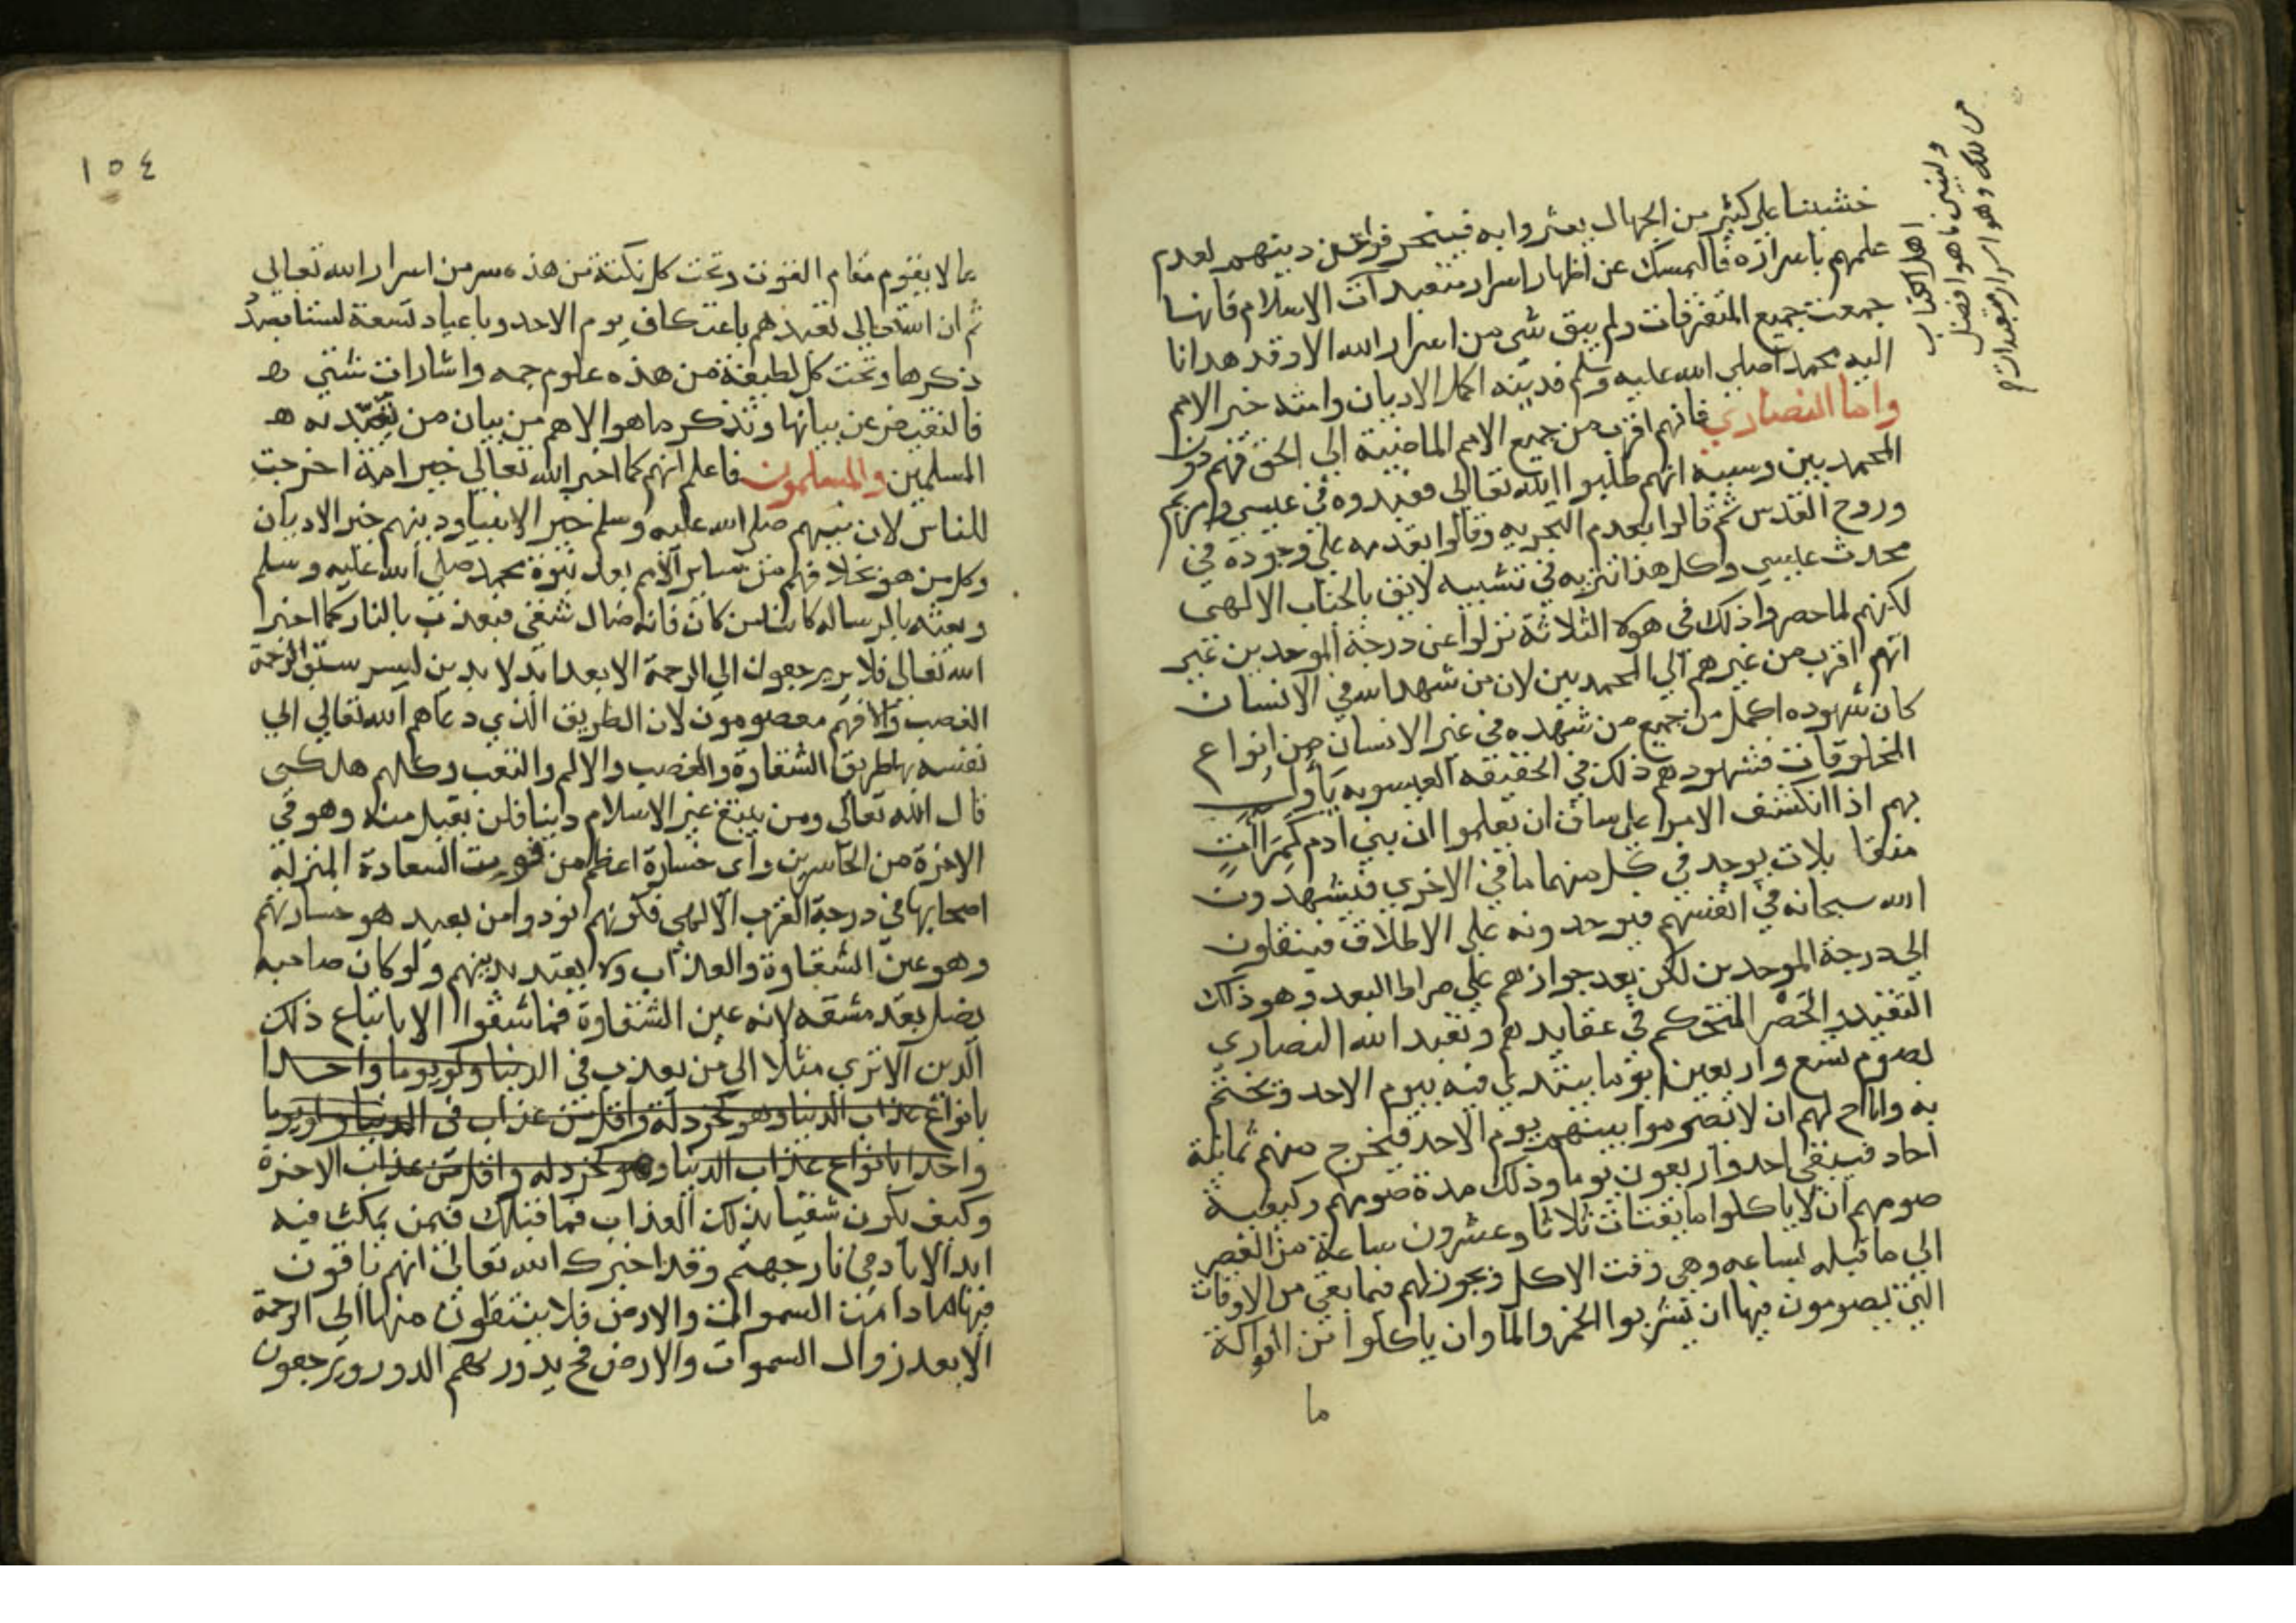 خشيتنا على كثير من الجهال يعثروا به فيخرجوا عن دينهم لعدم
علمهم باسراره فالنمسك عن اظهار اسرار متعبدات الاسلام فانها
جمعت جميع المتفرقات ولم يبق شى من اسرار الله الا وقد هدانا
اليه محمد صلى الله عليه وسلم فدينه اكمل الاديان وامته خير الامم
واما النصارى فانهم اقرب من جميع الامم الماضية الى الحق فهم دون
المحمديين وسببه انهم طلبوا الله تعالى فعبدوه فى عيسى ومريم
وروح القدس ثم قالوا بعدم التجزيه وقالوا بقدمه على وجوده فى
محدث عيسى وكل هذا تنزيه فى تشبيه لايق بالجناب الالهى
لكنهم لما حصروا ذلك فى هولا الثلاثة نزلوا عن درجة الموحدين غير
انهم اقرب من غيرهم الى المحمديين لان من شهد الله فى الانسان
كان شهوده اكمل من جميع من شهده فى غير الانسان من انواع
المخلوقات فشهودهم ذلك فى الحقيقه العيسويه ياول
بهم اذا انكشف الامر على ساق ان يعلموا ان بنى ادم كمراات
متقابلات يوجد فى كل منهما ما فى الاخرى فيشهدون
الله سبحانه فى انفسهم فيوحدونه على الاطلاق فينقلون
الى درجة الموحدين لكن بعد جوازهم على صراط البعد وهو ذلك
التقييد والحصر المتحكم فى عقايدهم وتعبد الله النصارى
بصوم تسع واربعين يوما يبتدى فيه بيوم الاحد ويختم
به واباح لهم ان لا يصوموا بينهم يوم الاحد فيخرج منهم ثمانية
احاد فيبقى احد واربعون يوما وذلك مدة صومهم وكيفية
صومهم ان لا ياكلوا ما يقتات ثلاثا وعشرون ساعة من العصر
الى ما قبله بساعه وهى وقت الاكل ويجوز لهم فيما بقى من الاوقات
التى يصومون فيها ان يشربوا الخمر والما وان ياكلوا من الفواكة
ما
اهل الكتاب
ولنبين ما هو افضل
من ذلك وهو اسرار متعبداتهم
١٥٤
مالا يقوم مقام القوت وتحت كل نكتة من هذه سر من اسرار الله تعالى
ثم ان الله تعالى تعبدهم باعتكاف يوم الاحد وباعياد تسعة لسنا بصدد
ذكرها وتحت كل لطيفة من هذه علوم جمه واشارات شتى ه
فالنقبض عن بيانها ونذكر ما هو الاهم من بيان من تعبد به ه
المسلمين والمسلمون فاعلم انهم كما اخبر الله تعالى خير امة اخرجت
للناس لان نبيهم صلى الله عليه وسلم خير الانبيا ودينهم خير الاديان
وكل من هو بخلافهم من ساير الامم بعد نبوة محمد صلى الله عليه وسلم
وبعثه بالرسالة كائنا من كان فانه ضال شقى معذب بالنار كما اخبر
الله تعالى فلا يرجعون الى الرحمة الا بعد ابد الابدين لسر سبق الرحمة
الغضب والا فهم مغضوبون لان الطريق الذى دعاهم الله تعالى الى
نفسه بها طريق الشقاوة والغضب والالم والتعب وكلهم هلكى
قال الله تعالى ومن يبتغ غير الاسلام دينا فلن يقبل منه وهو فى
الاخرة من الخاسرين واى خسارة اعظم من فوت السعادة المنزلة
اصحابها فى درجة القرب الالهى فكونهم نودوا من بعيد هو خسارتهم
وهو عين الشقاوة والعذاب ولا يعتد بدينهم ولو كان صاحبه
يصل بعد مشقه لانه عين الشقاوة فما شقوا الا باتباع ذلك
الدين الا ترى مثلا الى من يعذب فى الدنيا ولو يوما واحدا
بانواع عذاب الدنيا وهو كخردلة واقل من عذاب فى الدنيا ولو يوما
واحدا بانواع عذاب الدنيا وهو كخردله واقل من عذاب الاخرة
وكيف يكون شقيا بذلك العذاب فما قبالك فيمن يمكث فيه
ابد الاباد فى نار جهنم وقد اخبرك الله تعالى انهم باقون
فيها ما دامت السموات والارض فلا ينتقلون منها الى الرحمة
الا بعد زوال السموات والارض فح يدور بهم الدور ويرجعون